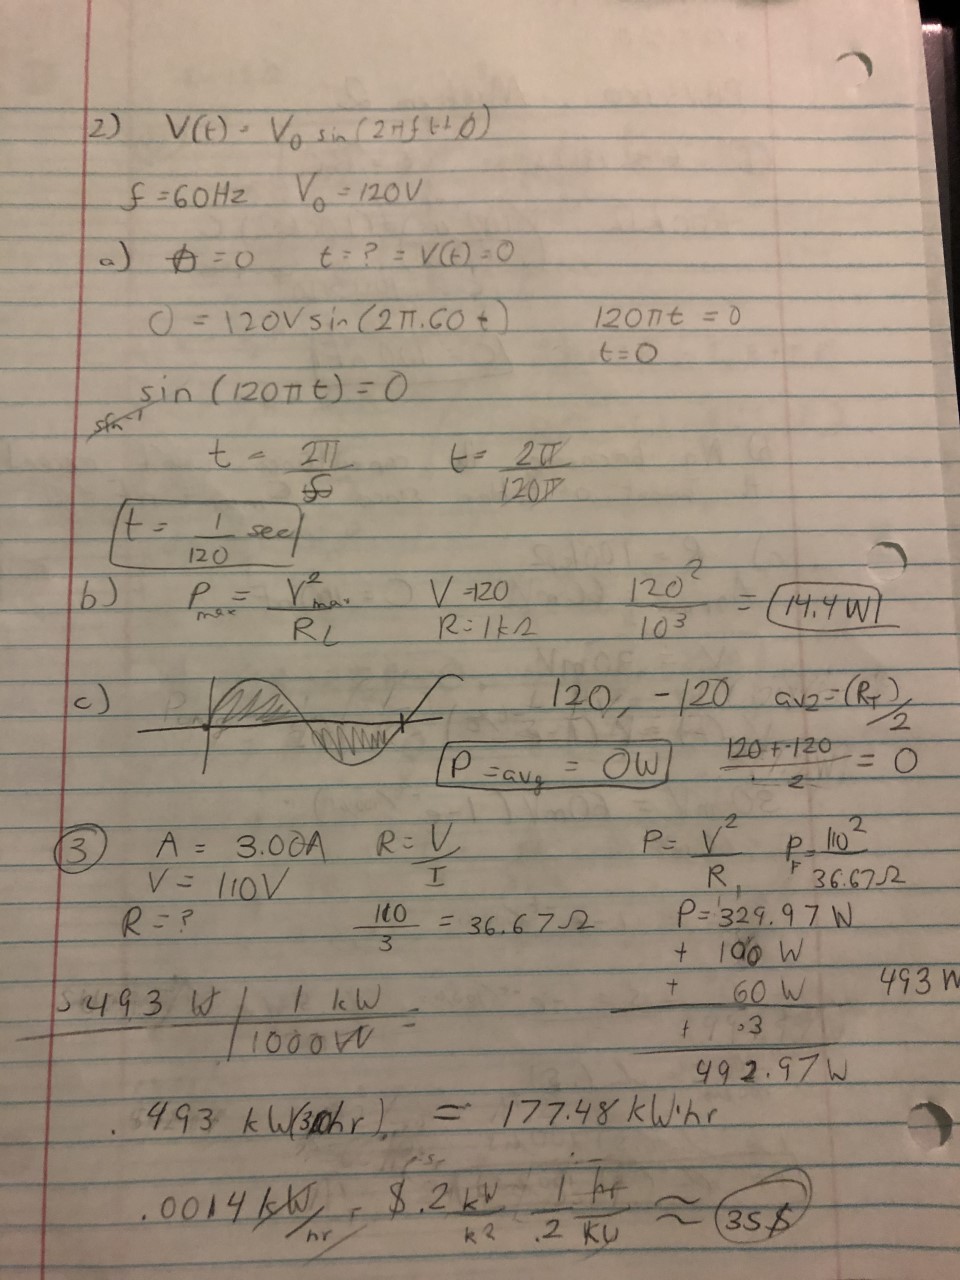 2) V(t) = V₀ sin(2πft+φ)
f = 60Hz V₀ = 120V
a) φ = 0 t = ? = V(t) = 0
0 = 120V sin(2π.60 t) 120πt = 0
t = 0
sin (120πt) = 0
sin⁻¹
t = 2π/f t = 2π/120π
t = 1/120 sec
b) P max = V²max/RL V = 120 R = 1kΩ 120²/10³ = 14.4W
c) 120, -120 avg = (RT)/2
P = avg = 0W 120 + -120/2 = 0
3 A = 3.00A R = V/I P = V²/R, P = 110²/36.67Ω
V = 110V
R = ? 110/3 = 36.67Ω P = 329.97 W
+ 100 W
+ 60 W 493 W
+ .3
492.97 W
493 W | 1 kW / 1000 W =
.493 kW( hr) = 177.48 kW·hr
.0014 kW/hr . $.2 kW 1 hr/.2 ≈ 35$